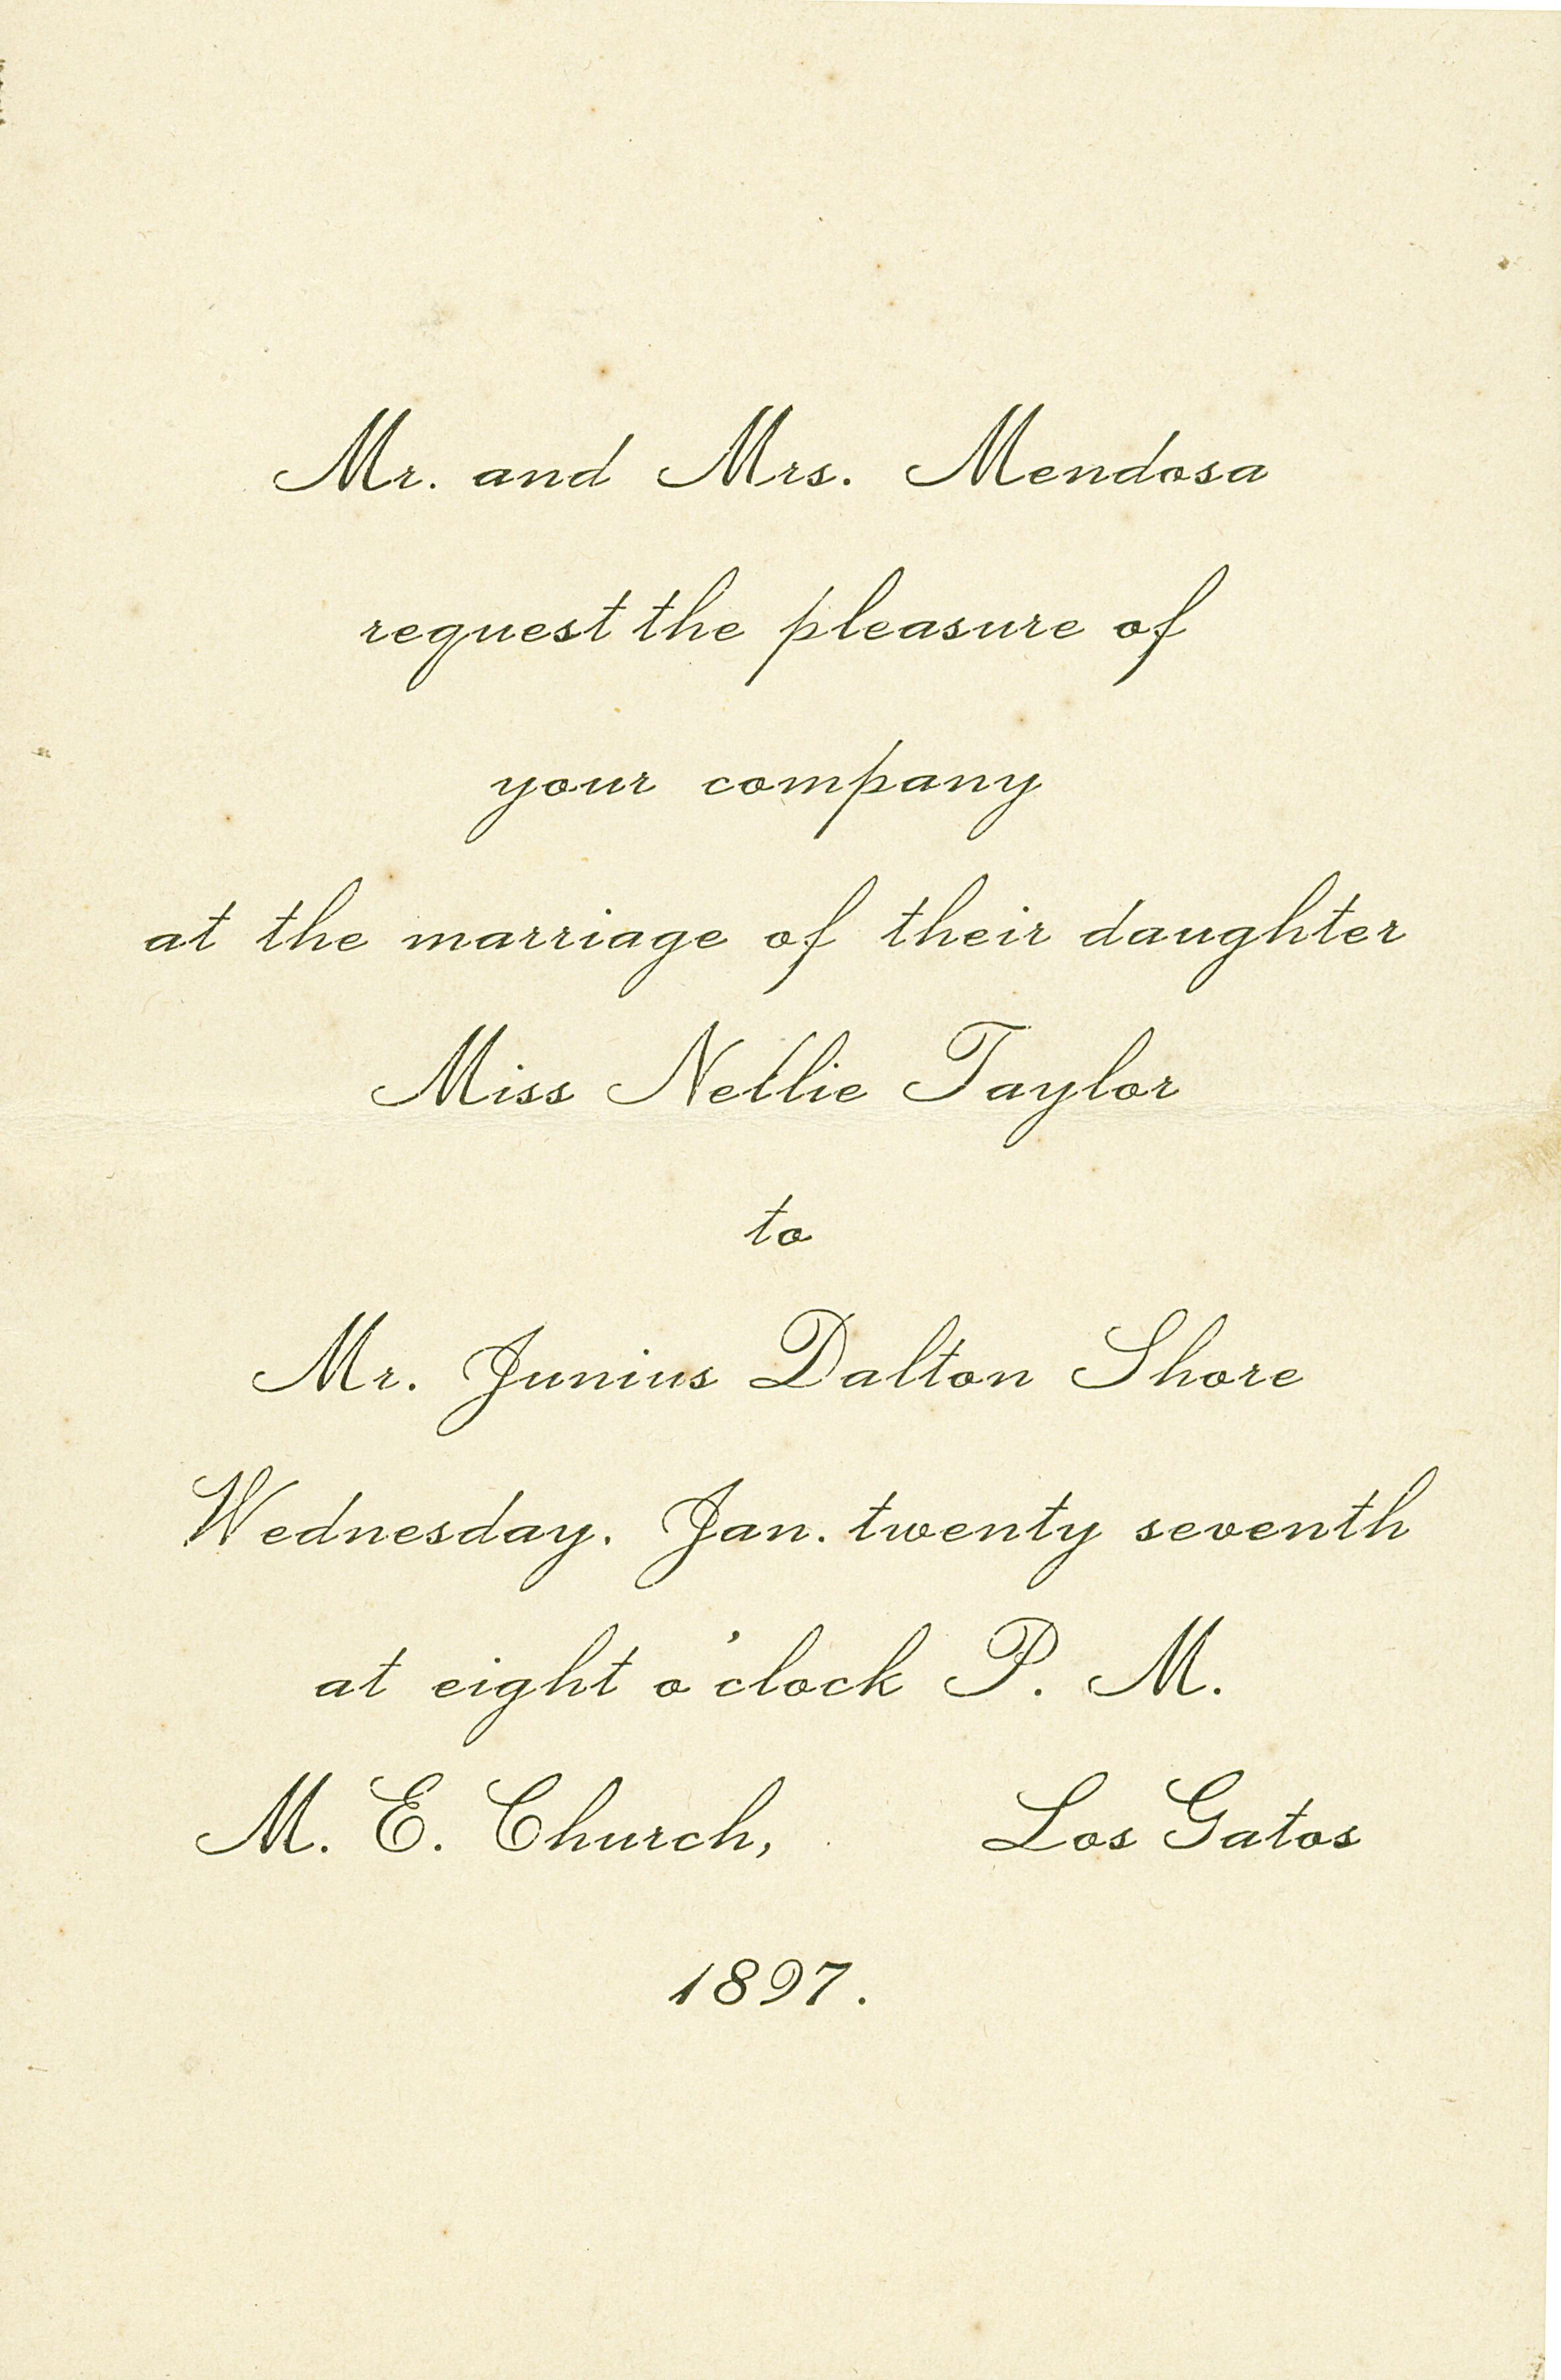 Mr. and Mrs. Mendosa
request the pleasure of
your company
at the marriage of their daughter
Miss Nellie Taylor
to
Mr. Junius Dalton Shore
Wednesday. Jan. twenty seventh
at eight o'clock P. M.
M. E. Church, Los Gatos
1897.